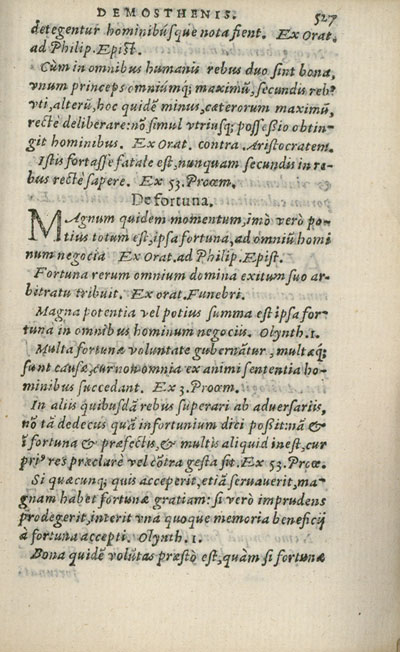 DEMOSTHENIS. 527
detegentur hominibúsque nota fient. Ex Orat.
ad Philip. Epist.
Cùm in omnibus humanis rebus duo sint bona,
vnum princeps omniũmq; maximũ, secundis reb?
vti, alterũ, hoc quidẽ minus, cæterorum maximũ,
rectè deliberare: nõ simul vtriusq; possessio obtin-
git hominibus. Ex Orat. contra Aristocratem.
Istis fortasse fatale est, nunquam secundis in re-
bus rectè sapere. Ex 53. Proœm.
De fortuna.
MAgnum quidem momentum, imò verò po-
tius totum est, ipsa fortuna, ad omniũ homi
num negocia Ex Orat. ad Philip. Epist.
Fortuna rerum omnium domina exitum suo ar-
bitratu tribuit. Ex orat. Funebri.
Magna potentia vel potius summa est ipsa for-
tuna in omnibus hominum negociis. Olynth. 1.
Multa fortunæ voluntate gubernãtur, multæq;
sunt causæ, cur non omnia ex animi sententia ho-
minibus succedant. Ex 3. Proœm.
In aliis quibusdã rebus superari ab aduersariis,
nõ tã dedecus quã infortunium dici possit: nã &
ĩ fortuna & præfectis, & multis aliquid inest, cur
pri? res præclarè vel cõtra gesta sit. Ex 53. Prœ.
Si quæcunq; quis acceperit, etiã seruauerit, ma-
gnam habet fortunæ gratiam: si verò imprudens
prodegerit, interit vna quoque memoria beneficij
à fortuna accepti. Olynth. 1.
Bona quidẽ volũtas præsto est, quàm si fortunæ